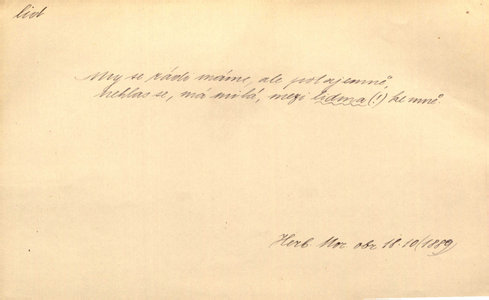 lid
My se rádi máme, ale potajemně,
nehlas se, má milá, mezi lidma (!) ke mně
Herb. Mor. obr. 18. 10 (1889)